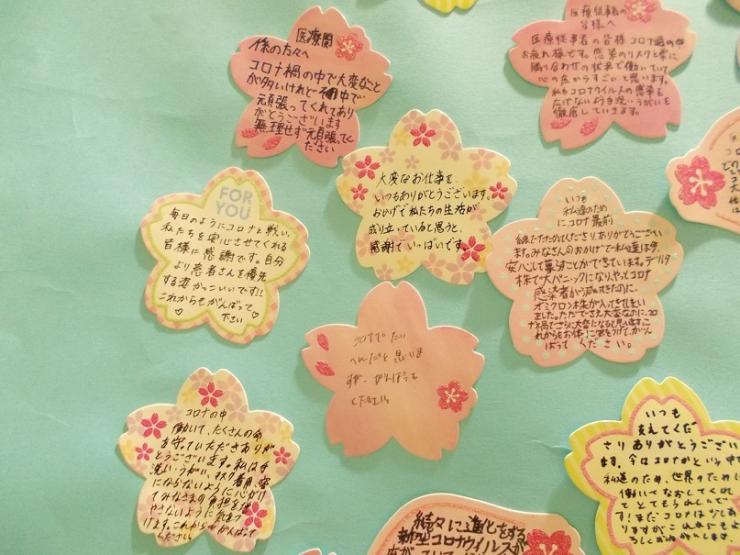 医療関
係の方々へ
コロナ禍の中で大変なこと
が多いけれど 中で
頑張ってくれてあり
がとうございます
無理せず頑張ってく
ださい
医療従事者の
皆様へ
医療従事者の皆様コロナ過の中
お疲れ様です。感染のリスクと常に
隣り合わせの状米で働いていて
心の底からすごいと思います。
私もコロナウイルスの感染を
広げないよう手洗いうがいを
徹底していきます。
FOR
YOU
毎日のようにコロナと戦い、
私たちを安心させてくれる
皆様に感謝です。自分
より患者さんを優先
する姿がっこいいです!!
これからもがんばって
下さい♡
大変なお仕事を、
いつもありがとうございます。
おかげで私たちの生活が
成り立っていると思うと、
感謝でいっぱいです。
いつも
私達のため
にコロナ最前
ありがとうございい
ます。みなさんのおかげで私達は今
安心して暮すことができています。デルタ
株で大パニックになり、やっとコロナ
感染者が
オミクロン株が
ました。ただでさえ大変なのに、コロ
ナ禍でさらに大変になると思いますが、こ
れからもお体に気をつけて、がん
ばってください。
コロナでたい
へんだと思いま
すが、がんばって
ください。
コロナの中
働いて、たくさんの命
を守っていただきありが
とうございます。私は手
洗い、うがい、マスク着用、密
にならないように心がけ
てみなさまの負担を増
やさないように気をつ
けます。これからもがんばって
ください
いつも
支えてくだ
さりありがとうござい
ます。今はコロナがという中で
私達のため、世界のために
働いてなおしてくれ
てとてもうれしいで
す!まだコロナは少しあ
りますがこれからもよ
ろしくお
続々に進化をする
新型コロナウイルスが